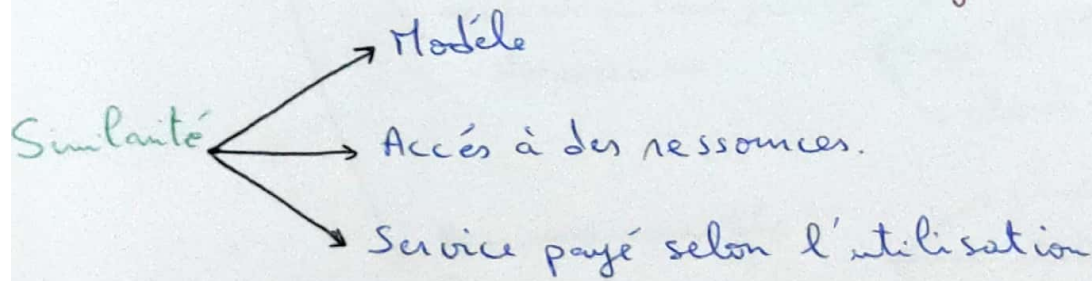 Modéle
Similarité
Accés à des ressources.
Service payé selon l'utilisation